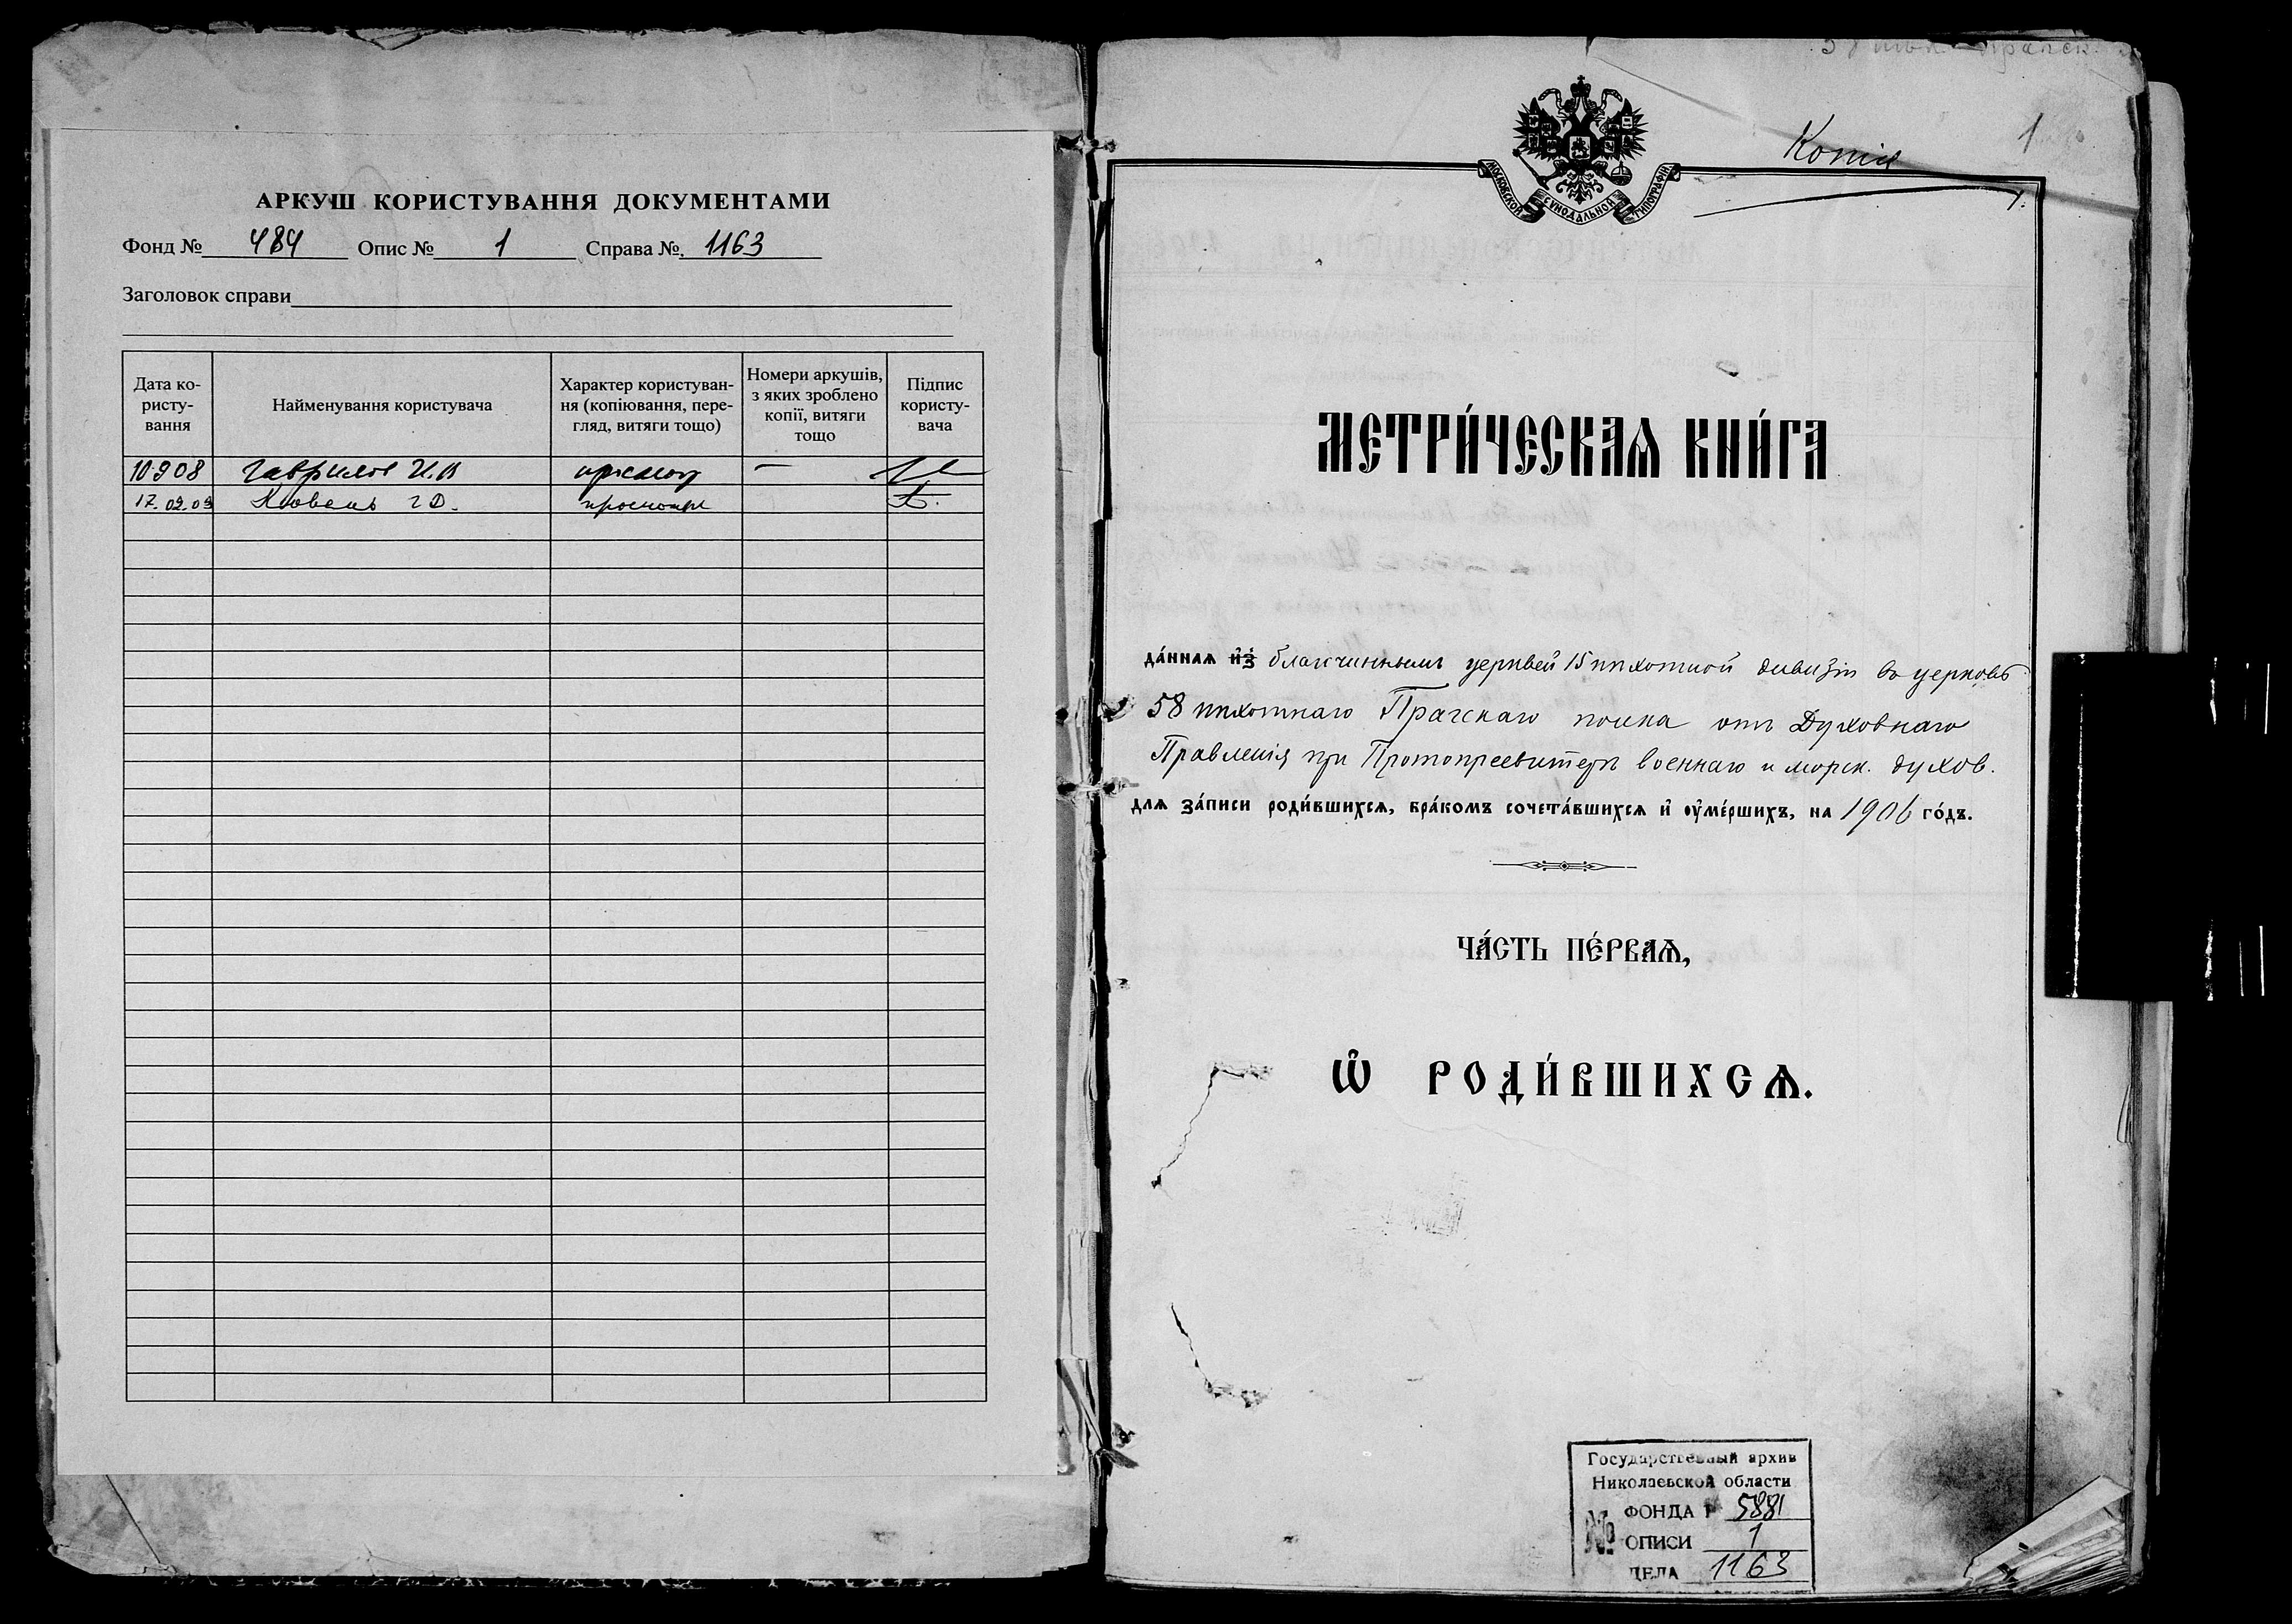 АРКУШ КОРИСТУВАННЯ ДОКУМЕНТАМИ
Фонд № 484 Опис № 1 Справа № 1163
Заголовок справи
Дата ко-
ристу-
вання
Найменування користувача
Характер користуван-
ня (копіювання, пере-
гляд, витяги тощо)
Номери аркушів,
з яких зроблено
копії, витяги
тощо
Підпис
користу-
вача
10 9 08 Гаврилов И.В просмотр –
17.02.09 Г Д. просмотр
58 Прагск.
Копія
1
МОСКОВСКОЙ СѴНОДАЛЬНОЙ ТИПОГРАФІИ
МЕТРИ́ЧЕСКАѦ КНИ́ГА
да́ннаѧ и҆з̾ благочиннымъ церквей 15 пѣхотной дивизіи въ церковь
58 пѣхотнаго Прагскаго полка отъ Духовнаго
Правленія при Протопресвитерѣ военнаго и морск. духов.
длѧ за́писи роди́вшихсѧ, бра́комъ сочета́вшихсѧ и҆ ѹ҆ме́ршихъ, на 1906 го́дъ.
ЧА́СТЬ ПЕ́РВАѦ,
Ѡ҆ РОДИ́ВШИХСѦ.
Государственный архив
Николаевской области
№ ФОНДА Р 5881
ОПИСИ 1
ДЕЛА 1163